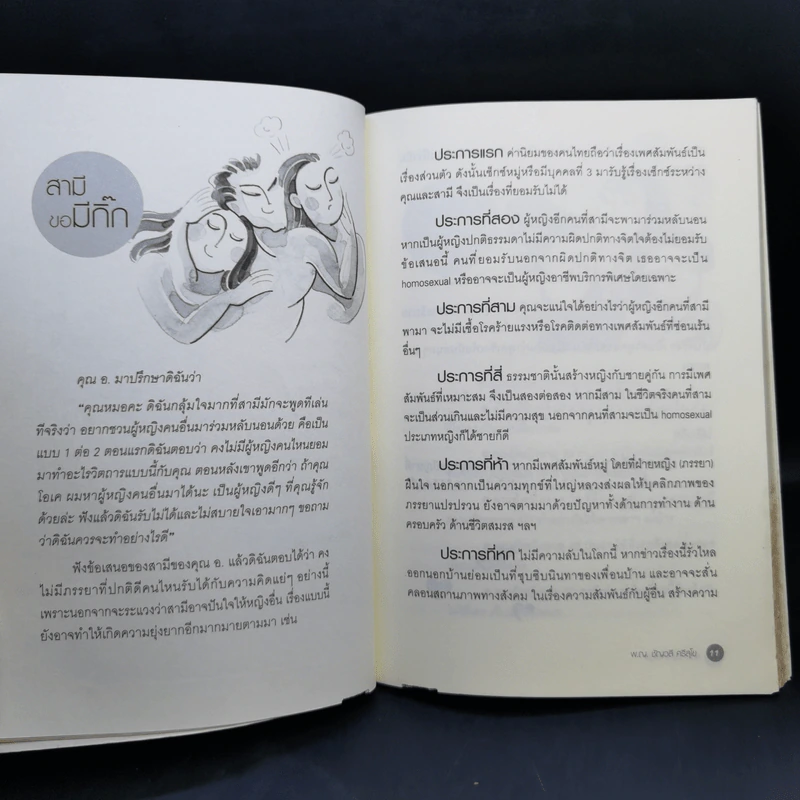 สามี
ขอมีกิ๊ก
คุณ อ. มาปรึกษาดิฉันว่า
“คุณหมอคะ ดิฉันกลุ้มใจมากที่สามีมักจะพูดทีเล่น
ทีจริงว่า อยากชวนผู้หญิงคนอื่นมาร่วมหลับนอนด้วย คือเป็น
แบบ 1 ต่อ 2 ตอนแรกดิฉันตอบว่า คงไม่มีผู้หญิงคนไหนยอม
มาทำอะไรวิตถารแบบนี้กับคุณ ตอนหลังเขาพูดอีกว่า ถ้าคุณ
โอเค ผมหาผู้หญิงคนอื่นมาได้นะ เป็นผู้หญิงดีๆ ที่คุณรู้จัก
ด้วยล่ะ ฟังแล้วดิฉันรับไม่ได้และไม่สบายใจเอามากๆ ขอถาม
ว่าดิฉันควรจะทำอย่างไรดี”
ฟังข้อเสนอของสามีของคุณ อ. แล้วดิฉันตอบได้ว่า คง
ไม่มีภรรยาที่ปกติดีคนไหนรับได้กับความคิดแย่ๆ อย่างนี้
เพราะนอกจากจะระแวงว่าสามีอาจปันใจให้หญิงอื่น เรื่องแบบนี้
ยังอาจทำให้เกิดความยุ่งยากอีกมากมายตามมา เช่น
ประการแรก ค่านิยมของคนไทยถือว่าเรื่องเพศสัมพันธ์เป็น
เรื่องส่วนตัว ดังนั้นเซ็กซ์หมู่หรือมีบุคคลที่ 3 มารับรู้เรื่องเซ็กซ์ระหว่าง
คุณและสามี จึงเป็นเรื่องที่ยอมรับไม่ได้
ประการที่สอง ผู้หญิงอีกคนที่สามีจะพามาร่วมหลับนอน
หากเป็นผู้หญิงปกติธรรมดาไม่มีความผิดปกติทางจิตใจต้องไม่ยอมรับ
ข้อเสนอนี้ คนที่ยอมรับนอกจากผิดปกติทางจิต เธออาจจะเป็น
homosexual หรืออาจจะเป็นผู้หญิงอาชีพบริการพิเศษโดยเฉพาะ
ประการที่สาม คุณจะแน่ใจได้อย่างไรว่าผู้หญิงอีกคนที่สามี
พามา จะไม่มีเชื้อโรคร้ายแรงหรือโรคติดต่อทางเพศสัมพันธ์ที่ซ่อนเร้น
อื่นๆ
ประการที่สี่ ธรรมชาตินั้นสร้างหญิงกับชายคู่กัน การมีเพศ
สัมพันธ์ที่เหมาะสม จึงเป็นสองต่อสอง หากมีสาม ในชีวิตจริงคนที่สาม
จะเป็นส่วนเกินและไม่มีความสุข นอกจากคนที่สามจะเป็น homosexual
ประเภทหญิงก็ได้ชายก็ดี
ประการที่ห้า หากมีเพศสัมพันธ์หมู่ โดยที่ฝ่ายหญิง (ภรรยา)
ฝืนใจ นอกจากเป็นความทุกข์ที่ใหญ่หลวงส่งผลให้บุคลิกภาพของ
ภรรยาแปรปรวน ยังอาจตามมาด้วยปัญหาทั้งด้านการทำงาน ด้าน
ครอบครัว ด้านชีวิตสมรส ฯลฯ
ประการที่หก ไม่มีความลับในโลกนี้ หากข่าวเรื่องนี้รั่วไหล
ออกนอกบ้านย่อมเป็นที่ซุบซิบนินทาของเพื่อนบ้าน และอาจจะสั่น
คลอนสถานภาพทางสังคม ในเรื่องความสัมพันธ์กับผู้อื่น สร้างความ
พ.ญ. ชัญวลี ศรีสุโข 11